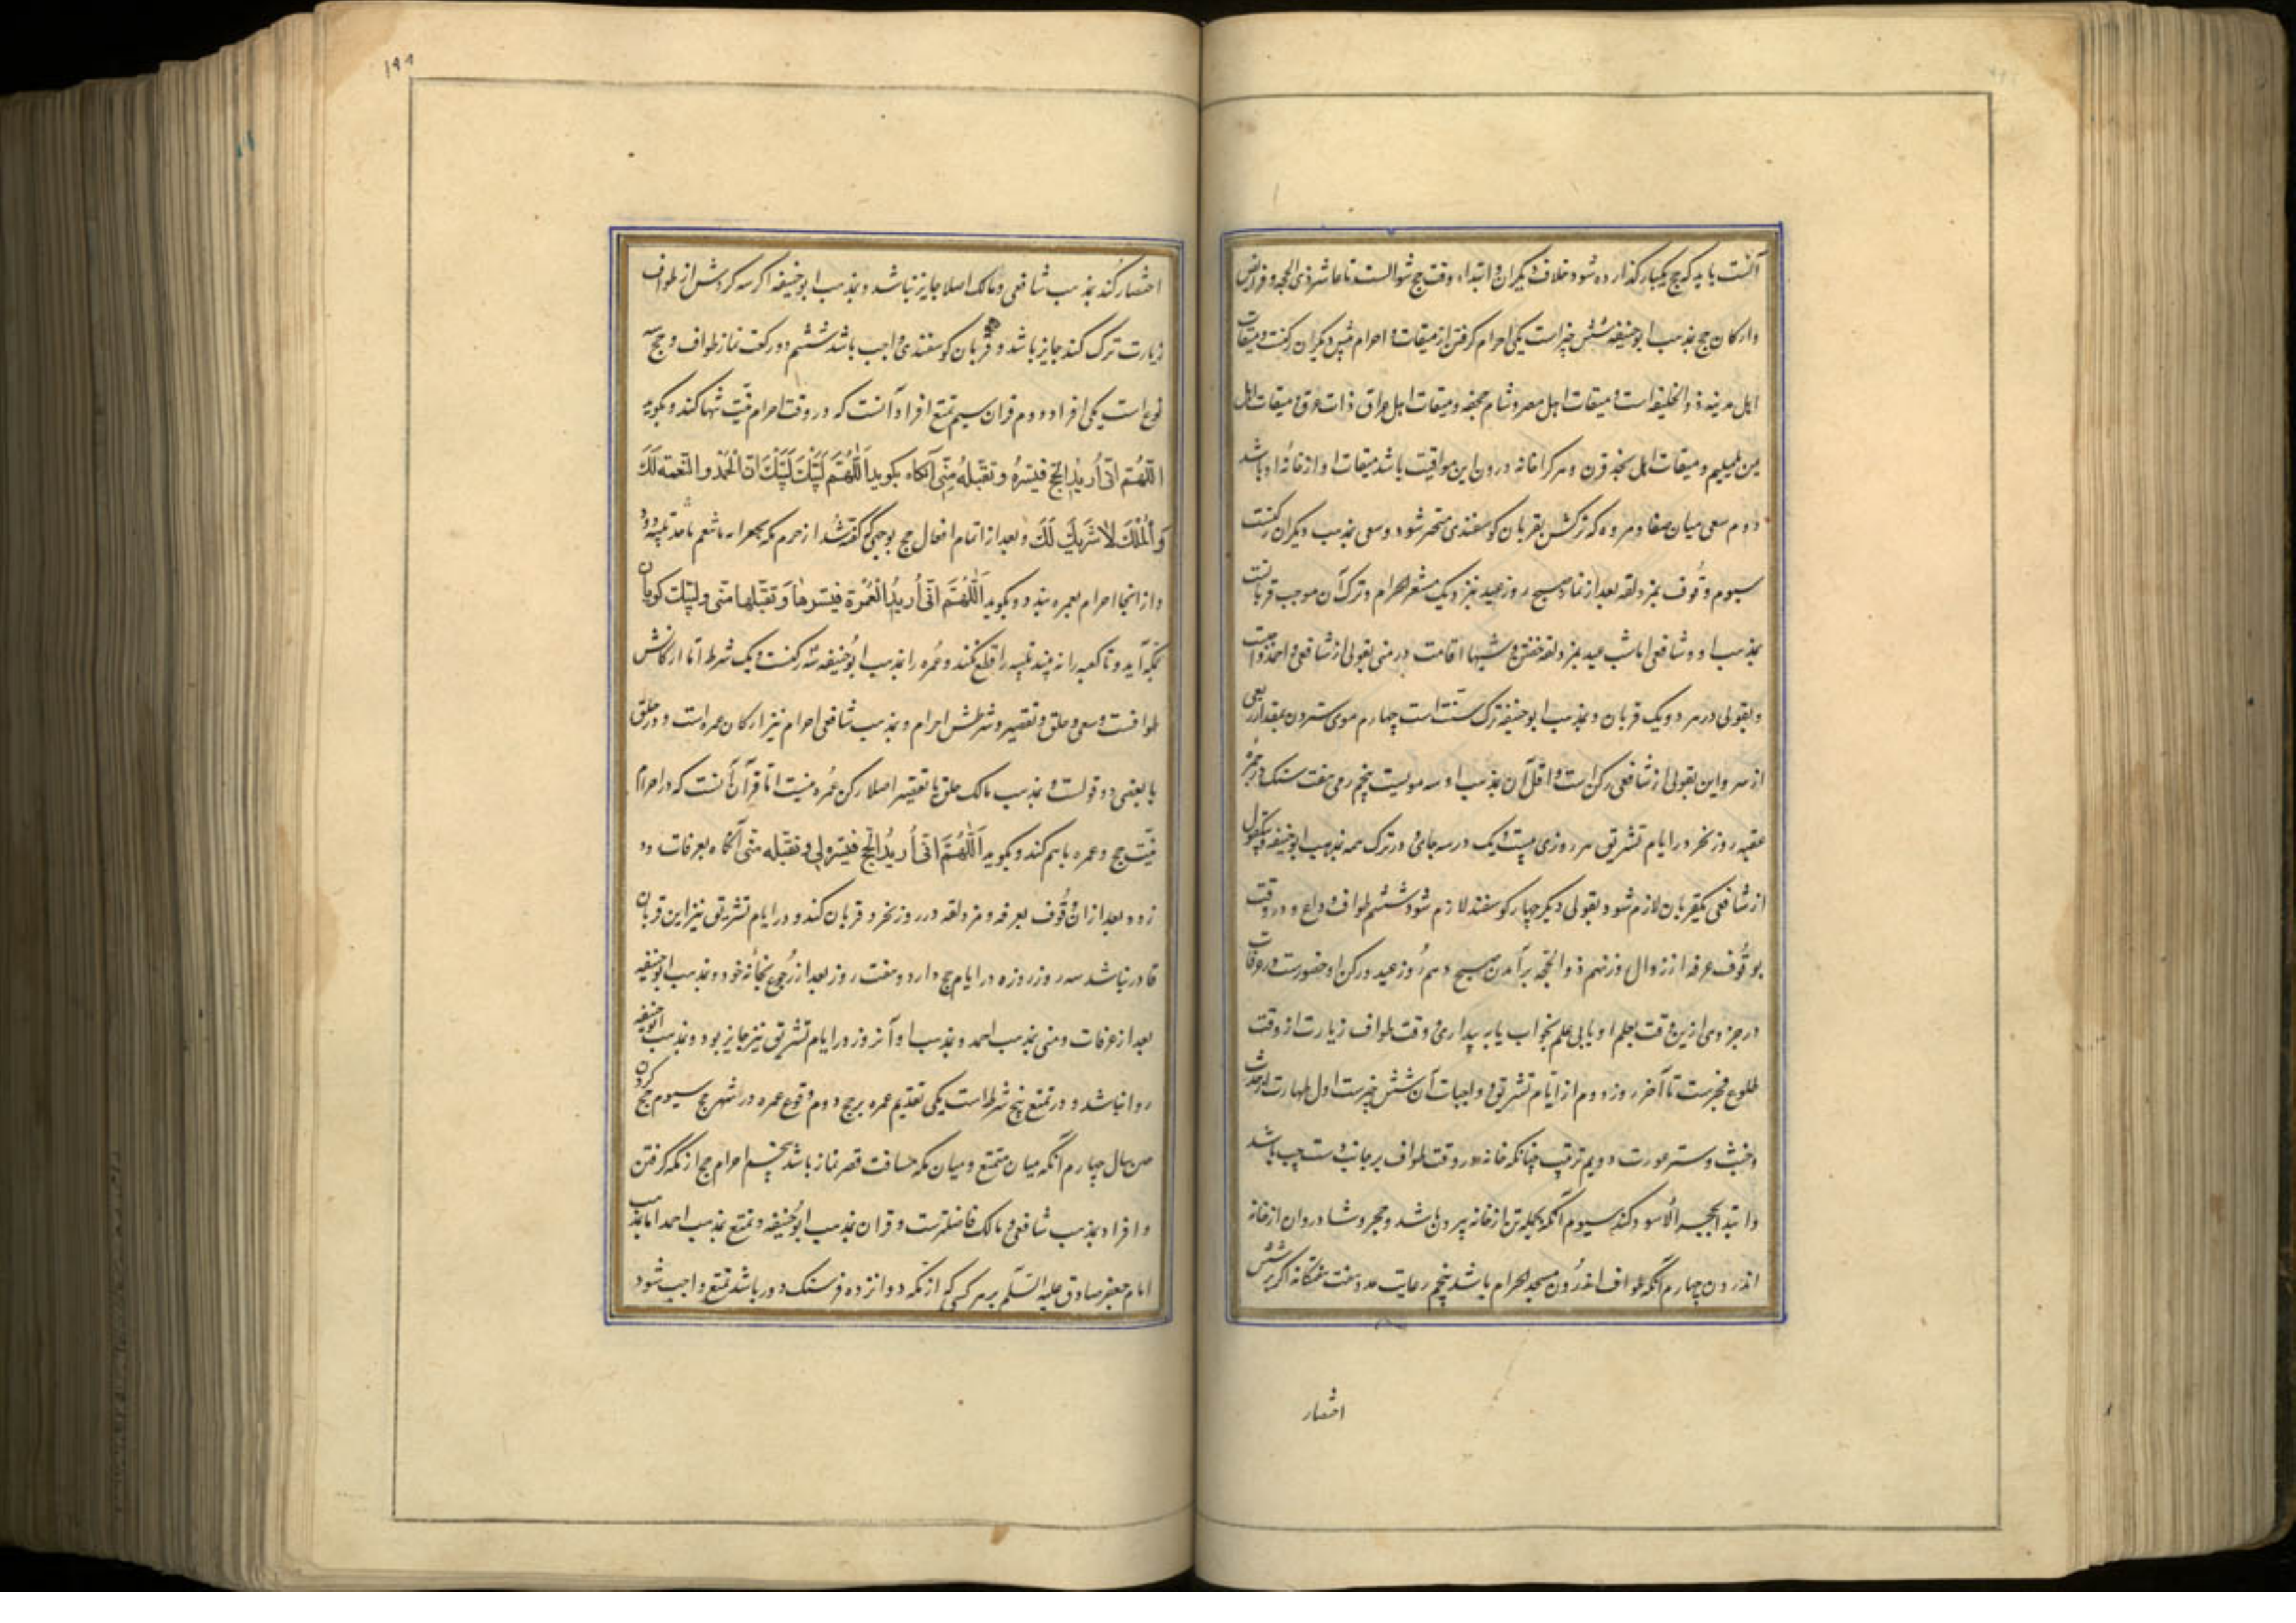 آنست باید که حج یکبار گذارده شود خلاف دیگران و ابتداء وقت حج شوالست تا عاشر ذی الحجه و فرایض
و ارکان حج بمذهب ابوحنیفه شش چیز است یکی احرام گرفتن از میقات و احرام پیش دیگران رکنست و میقات
اهل مدینه ذوالحلیفه است و میقات اهل مصر و شام جحفه و میقات اهل عراق ذات عرق و میقات اهل
یمن یلملم و میقات اهل نجد قرن و هر کرا خانه درون این مواقیت باشد میقات او از خانه او باشد
دوم سعی میان صفا و مروه که ترکش بقربان کوسفندی منجبر شود و سعی بمذهب دیگران رکنست
سیوم وقوف بمزدلفه بعد از نماز صبح روز عید بنزدیک مشعر الحرام و ترک آن موجب قربانست
بمذهب او و شافعی اما شب عید بمزدلفه خفتن و شبها اقامت در منی بقولی از شافعی و احمد واجبست
و بقولی در هر دو یک قربان و بمذهب ابوحنیفه ترک سنت است چهارم موی ستردن بمقدار ربعی
از سر و این بقولی از شافعی رکن است و اقل آن بمذهب او سه مویست پنجم رمی هفت سنک در جمره
عقبه روز نحر و در ایام تشریق هر روزی بیست و یک در سه جای و در ترک همه بمذهب ابوحنیفه و بیکقول
از شافعی یکقربان لازم شود و بقولی دیگر چهار کوسفند لازم شود ششم طواف وداع و در وقت
وقوف عرفه از زوال روز نهم ذوالحجه تا برآمدن صبح دهم روز عید و رکن او حضورست در عرفات
در جزوی ازین وقت بعلم او یا بی علم بخواب یا به بیداری و وقت طواف زیارت از وقت
طلوع فجرست تا آخر روز دوم از ایام تشریق و واجبات آن شش چیزست اول طهارت از حدث
و خبث و ستر عورت دویم ترتیب چنانکه خانه در وقت طواف بر جانب دست چپ باشد
و ابتدا بحجر الاسود کند سیوم آنکه بکلیه تن از خانه بیرون باشد و حجر و شادروان از خانه
اندرون چهارم آنکه طواف اندرون مسجد الحرام باشد پنجم رعایت عدد هفت هفتگانه اگر بر شش
اختصار
۱۹۹
اختصار کند بمذهب شافعی و مالک اصلا جایز نباشد و بمذهب ابوحنیفه اگر سه گردش از طواف
زیارت ترک کند جایز باشد و قربان کوسفندی واجب باشد ششم دو رکعت نماز طواف و حج سه
نوع است یکی افراد دوم قران سیم تمتع افراد آنست که در وقت احرام نیت تنها کند و بگوید
اللهم انی أرید الحج فیسره و تقبله منی آنکاه بگوید اللهم لبیک لبیک ان الحمد و النعمه لک
و الملک لا شریک لک و بعد از اتمام افعال حج بوجهی که گفته شد از حرم مکه
و از انجا احرام بعمره بندد و بگوید اللهم انی أرید العمرة فیسرها و تقبلها منی و لبیک کویان
بمکه آید و تا کعبه را نه بیند تلبیه را قطع نکند و عمره را بمذهب ابوحنیفه سه رکنست و یک شرط اما ارکانش
طوافست و سعی و حلق و تقصیر و شرطش احرام و بمذهب شافعی احرام نیز ارکان عمره است و در حلق
یا بعضی دو قولست و بمذهب مالک حلق یا تقصیر اصلا رکن عمره نیست اما قران آنست که در احرام
نیت حج و عمره باهم کند و بگوید اللهم انی أرید الحج فیسره لی و تقبله منی آنکاه بعرفات رود
زود و بعد از ان وقوف بعرفه و مزدلفه در روز نحر و قربان کند و در ایام تشریق نیز این قربان
قادر نباشد سه روز روزه در ایام حج دارد و هفت روز بعد از رجوع بخانه خود و بمذهب ابوحنیفه
بعد از عرفات و منی بمذهب احمد و بمذهب او آنروز در ایام تشریق نیز جایز بود و بمذهب ابوحنیفه
روا نباشد و در تمتع پنج شرط است یکی تقدیم عمره بر حج دوم وقوع عمره در اشهر حج سیوم حج کردن
هم سال چهارم آنکه میان متمتع و میان مکه مسافت قصر نماز باشد پنجم احرام حج از مکه گرفتن
و افراد بمذهب شافعی و مالک فاضلترست و قران بمذهب ابوحنیفه و تمتع بمذهب احمد اما بمذهب
امام جعفر صادق علیه السلم بر هر کسی که از مکه دوانزده فرسنک دور باشد تمتع واجب شود